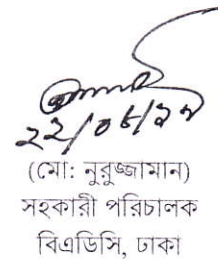 ২২/০৮/১৭
(মো: নুরুজ্জামান)
সহকারী পরিচালক
বিএডিসি, ঢাকা